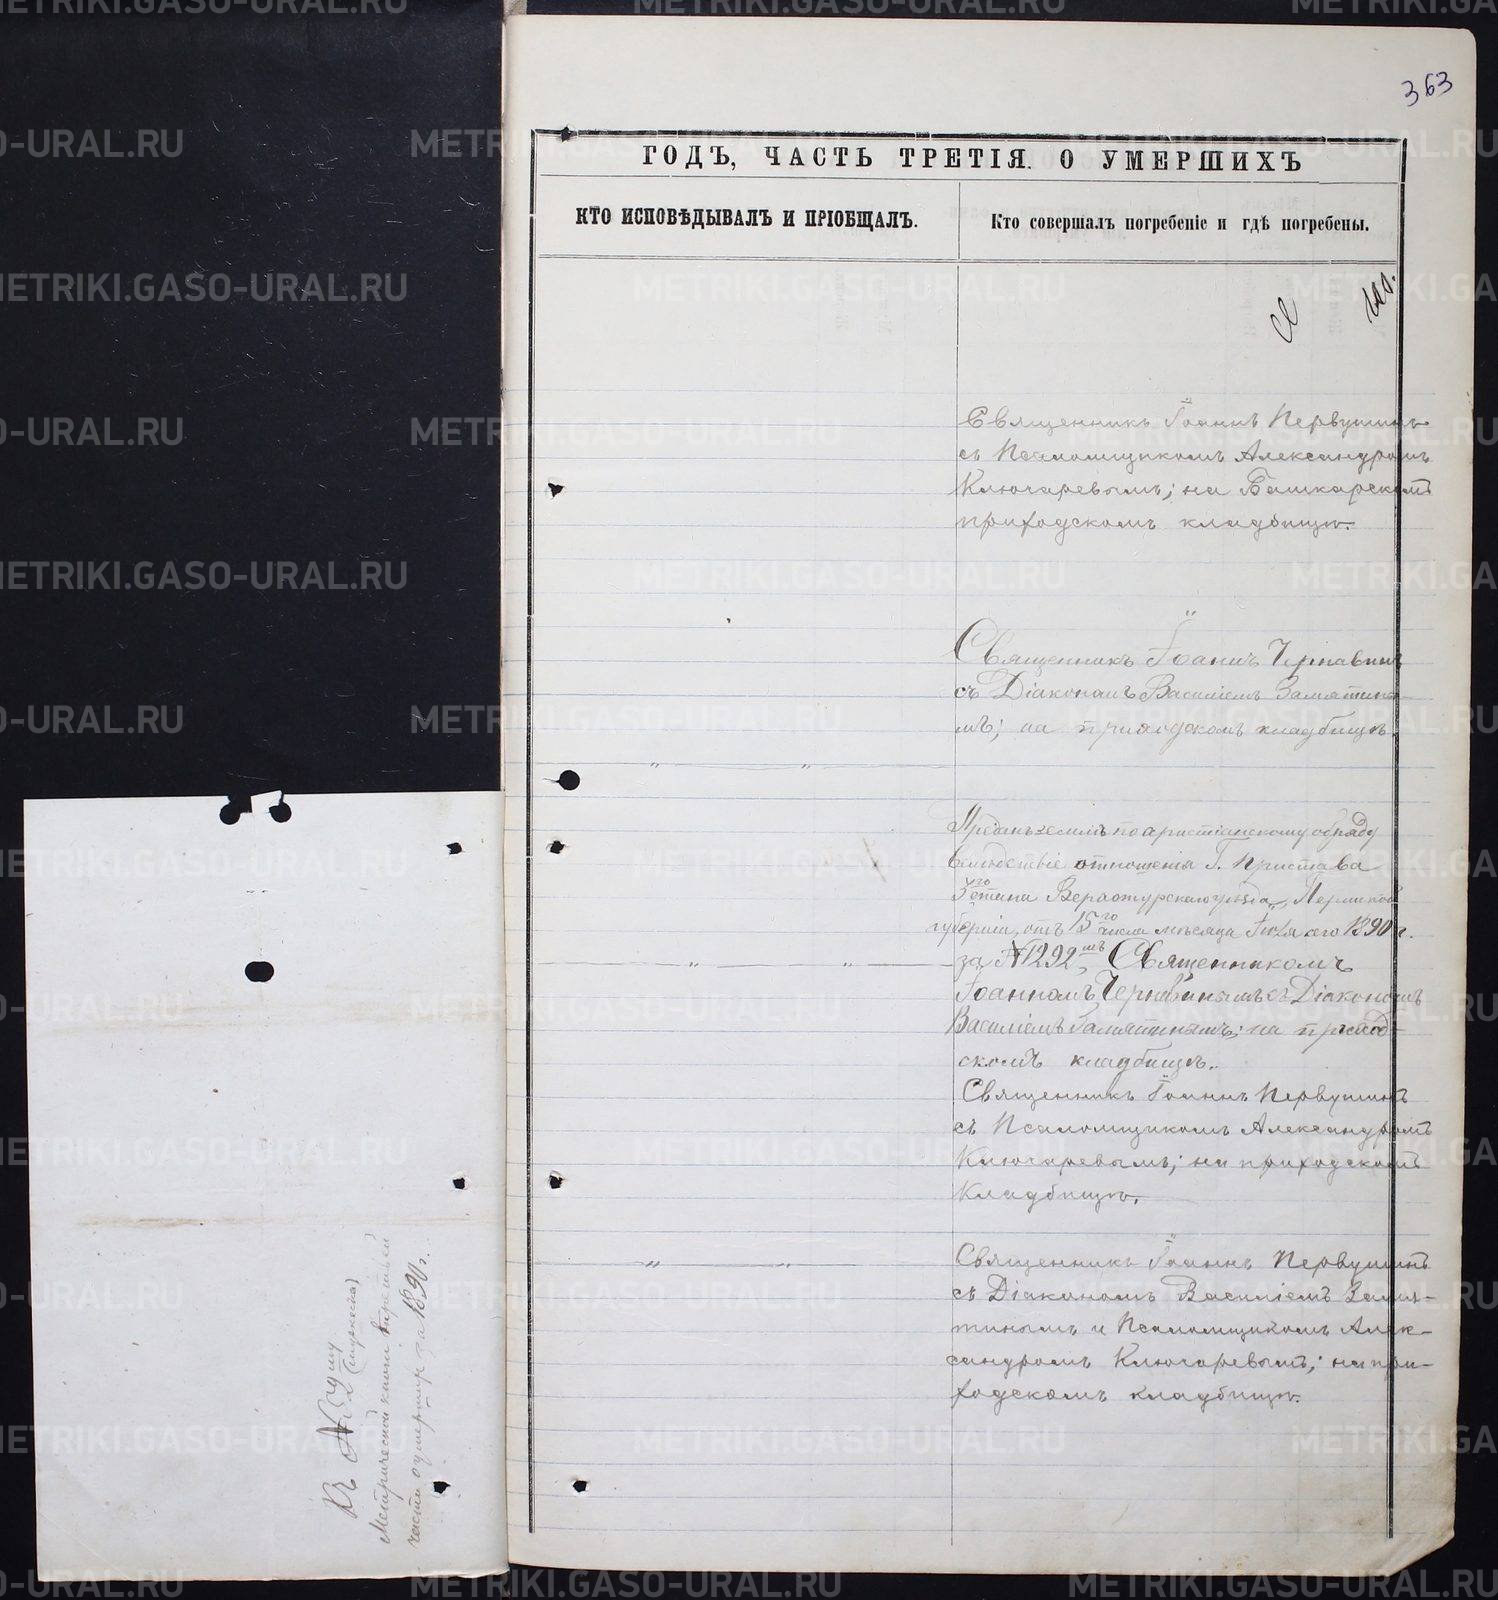 363
ГОДЪ, ЧАСТЬ ТРЕТІЯ. О УМЕРШИХЪ
КТО ИСПОВѢДЫВАЛЪ И ПРІОБЩАЛЪ.
Кто совершалъ погребеніе и гдѣ погребены.
Священникъ Іоаннъ Первушинъ
съ Псаломщикомъ Александромъ
Ключаревымъ; на Башкарскомъ
приходскомъ кладбищѣ.
Священникъ Іоаннъ Чернавинъ
съ Діакономъ Василіемъ Замятины-
мъ; на приходскомъ кладбищѣ
Преданъ землѣ по христіанскому обряду
вслѣдствіе отношенія Г. Пристава
3го стана Верхотурскаго уѣзда, Пермской
губерніи, отъ 15го числа мѣсяца сего 1890 г.
за №1292мъ, Священникомъ
Іоанномъ Чернавинымъ съ Діакономъ
Василіемъ Замятинымъ; на приход-
скомъ кладбищѣ.
Священникъ Іоаннъ Первушинъ
съ Псаломщикомъ Александромъ
Ключаревымъ; на приходскомъ
кладбищѣ.
Священникъ Іоаннъ Первушинъ
съ Діакономъ Василіемъ Замя-
тинымъ и Псаломщикомъ Алек-
сандромъ Ключаревымъ; на при-
ходскомъ кладбищѣ.
Къ №
Метрической книги третьей
части о умершихъ за 1890 г.
METRIKI.GASO-URAL.RU